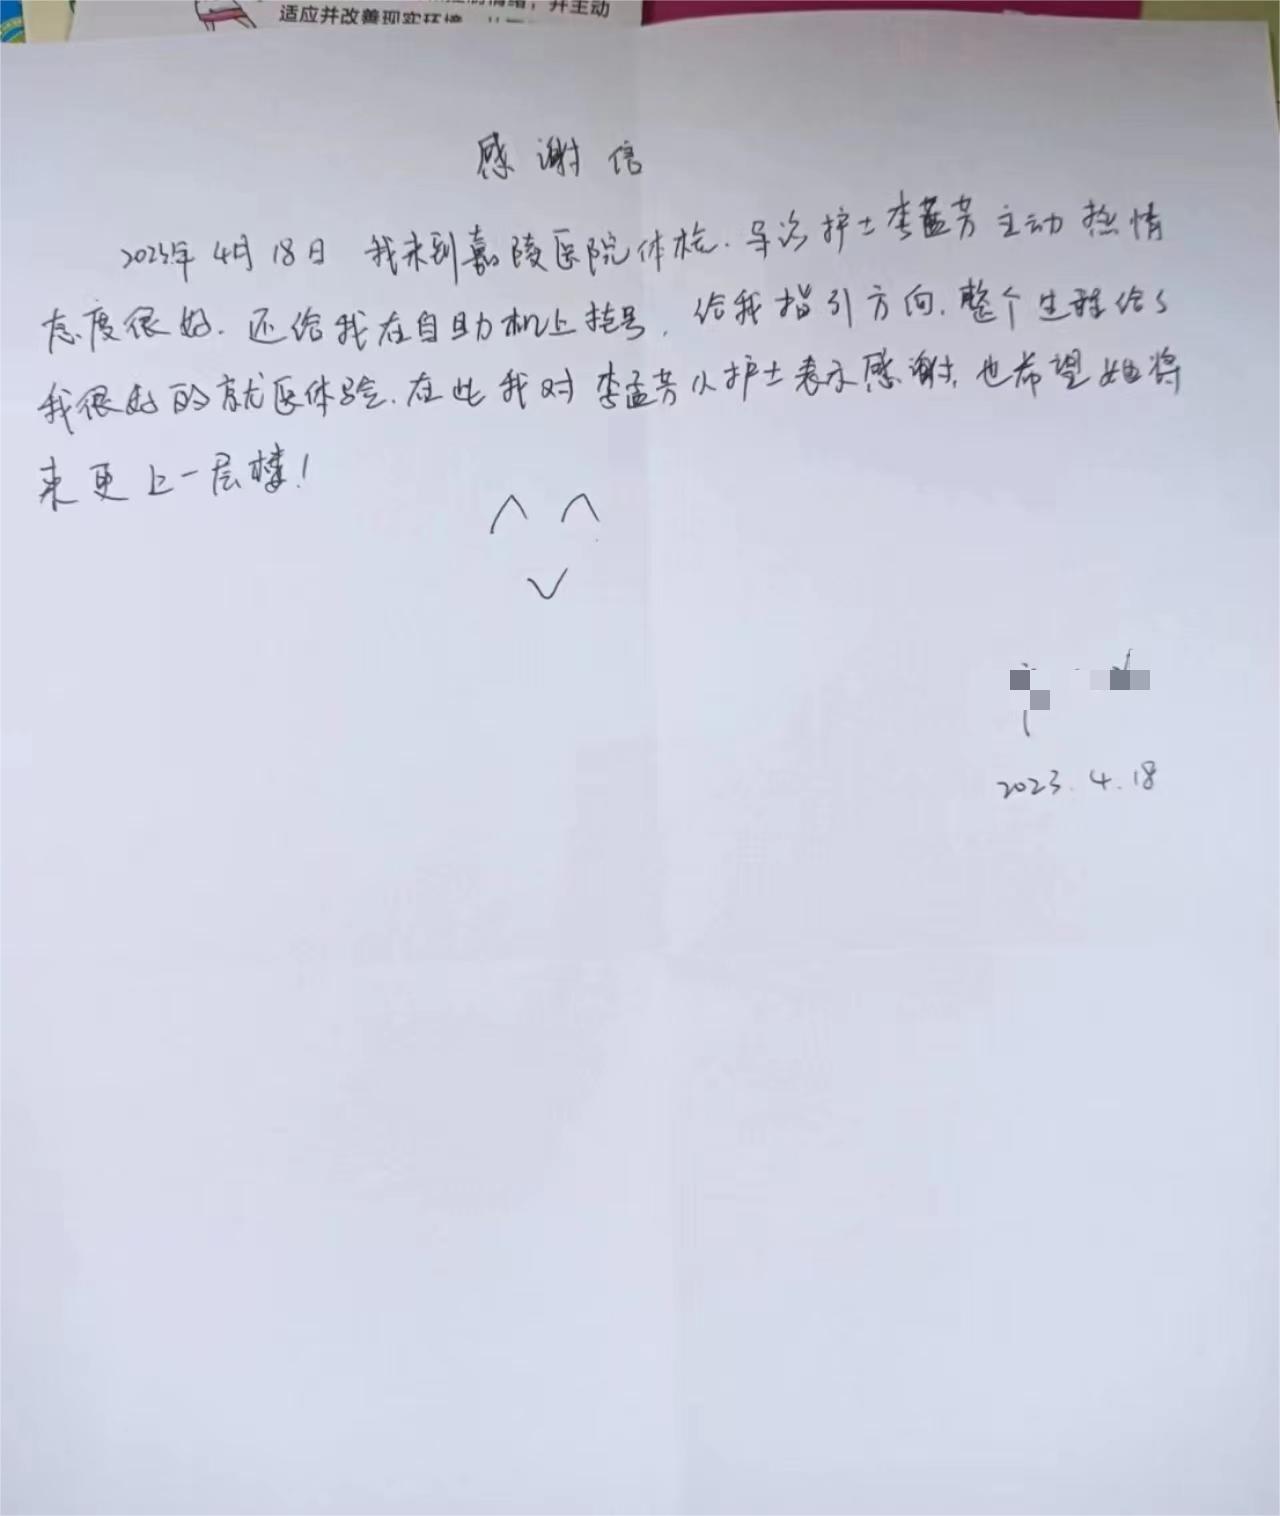 适应并改善现实环境
感谢信
2023年4月18日 我来到嘉陵医院体检.导诊护士李孟芳主动热情
态度很好.还给我在自助机上挂号,给我指引方向.整个过程给了
我很好的就医体验.在此我对李孟芳护士表示感谢,也希望她将
来更上一层楼!
2023.4.18